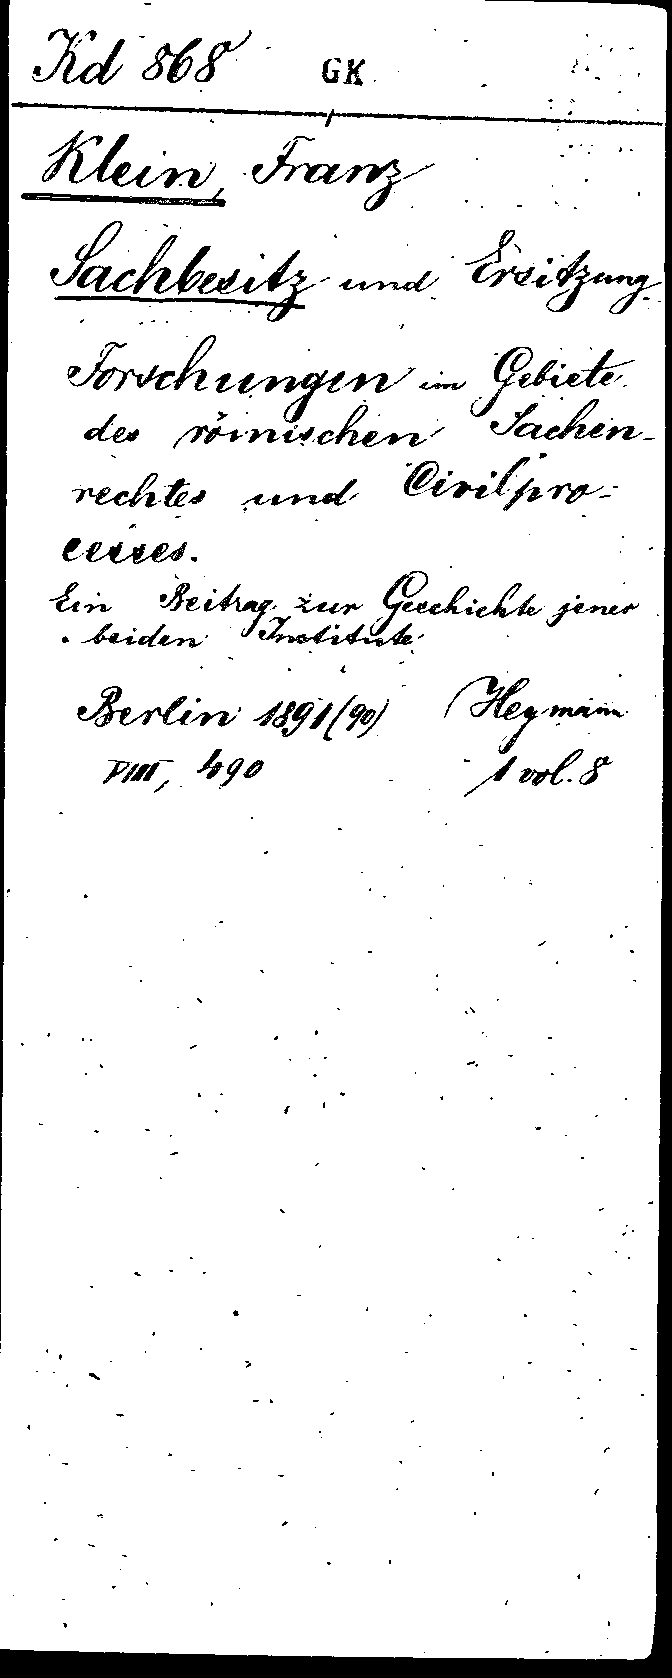 Kd 868 GK
Klein, Franz
Sachbesitz und Ersitzung.
Forschungen im Gebiete
des römischen Sachen-
rechtes und Civilpro-
cesses.
Ein Beitrag zur Geschichte jener
beiden Institute
Berlin 1891(90) Heymann
VIII, 490 1 vol. 8